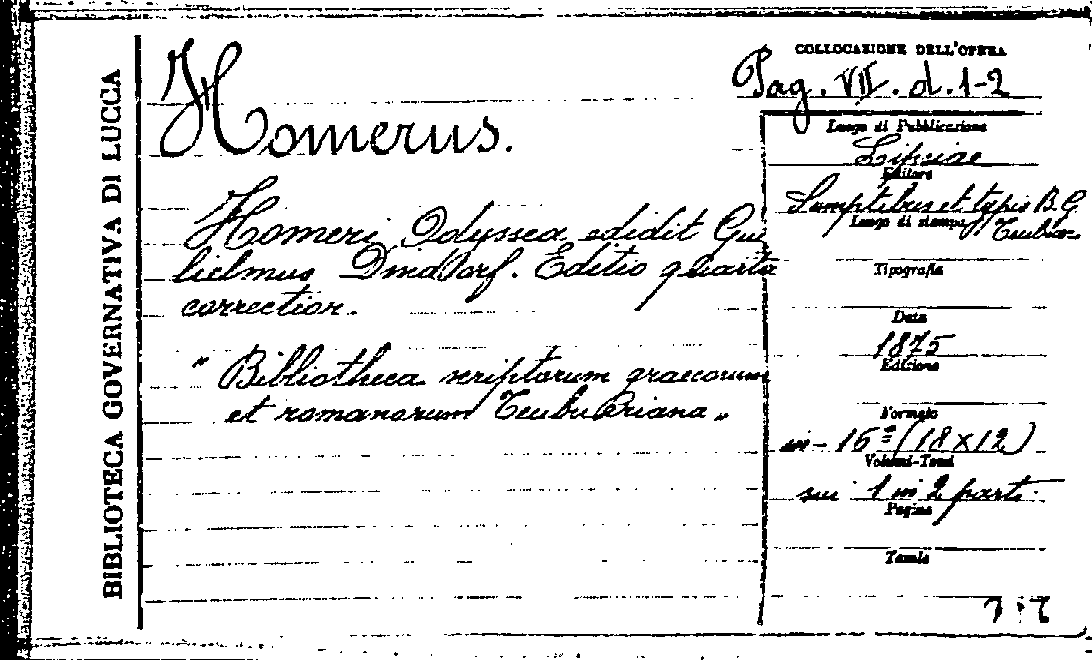 BIBLIOTECA GOVERNATIVA DI LUCCA
Homerus.
Homeri Odyssea edidit Gui
lielmus Dindorf. Editio quarta
correctior.
" Bibliotheca scriptorum graecorum
et romanorum Teubneriana „
COLLOCAZIONE DELL'OPERA
Pag. VII. d. 1-2
Luogo di Pubblicazione
Lipsiae
Editore
Sumptibus et typis B. G.
Teubner
Luogo di stampa
Tipografia
Data
1875
Edizione
Formato
in-16° (18x12)
Volumi-Tomi
in 1 in 2 parti.
Pagine
Tavole